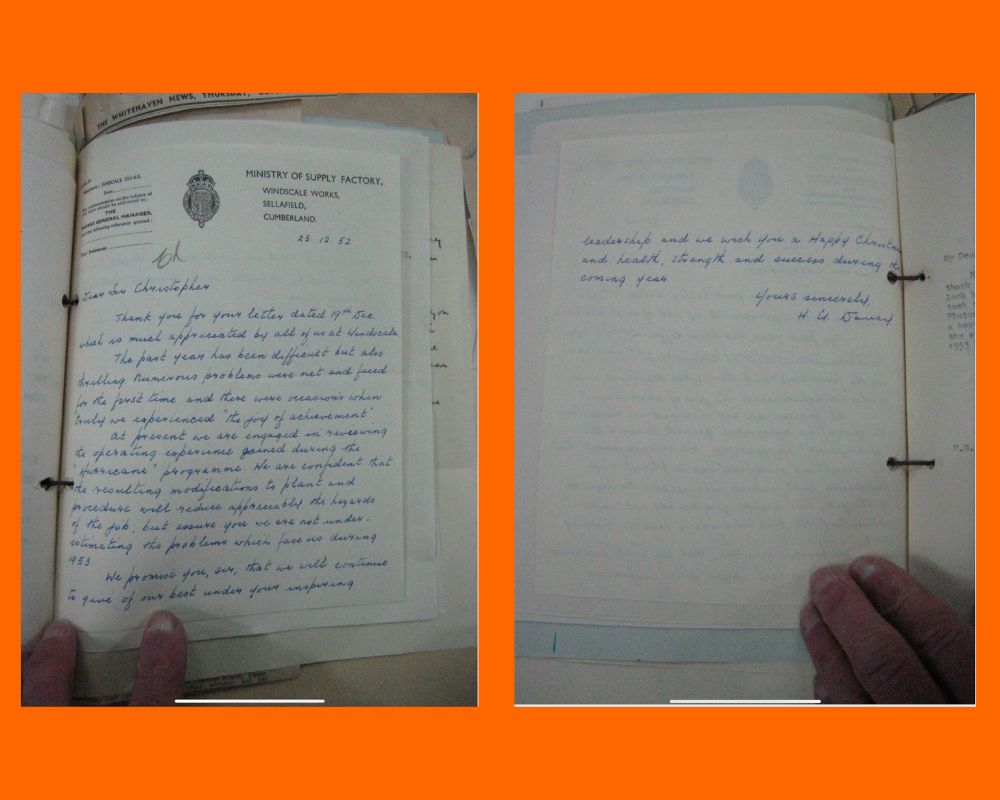 THE WHITEHAVEN NEWS, THURSDAY,
Telephone: SEASCALE
THE
GENERAL MANAGER,
MINISTRY OF SUPPLY FACTORY,
WINDSCALE WORKS,
SELLAFIELD,
CUMBERLAND.
23.12.52
Dear Sir Christopher
Thank you for your letter dated 19th Dec.
which is much appreciated by all of us at Windscale.
The past year has been difficult but also
thrilling. Numerous problems were met and faced
for the first time and there were occasions when
truly we experienced "the joy of achievement"
At present we are engaged in reviewing
the operating experience gained during the
"Hurricane" programme. We are confident that
the resulting modifications to plant and
procedure will reduce appreciably the hazards
of the job, but assure you we are not under-
estimating the problems which face us during
1953.
We promise you, sir, that we will continue
to give of our best under your inspiring
leadership and we wish you a Happy Christmas
and health, strength and success during the
coming year.
Yours sincerely,
H. G. Davey
My Dear
thank
look
task
Pluto
1953
H.G.